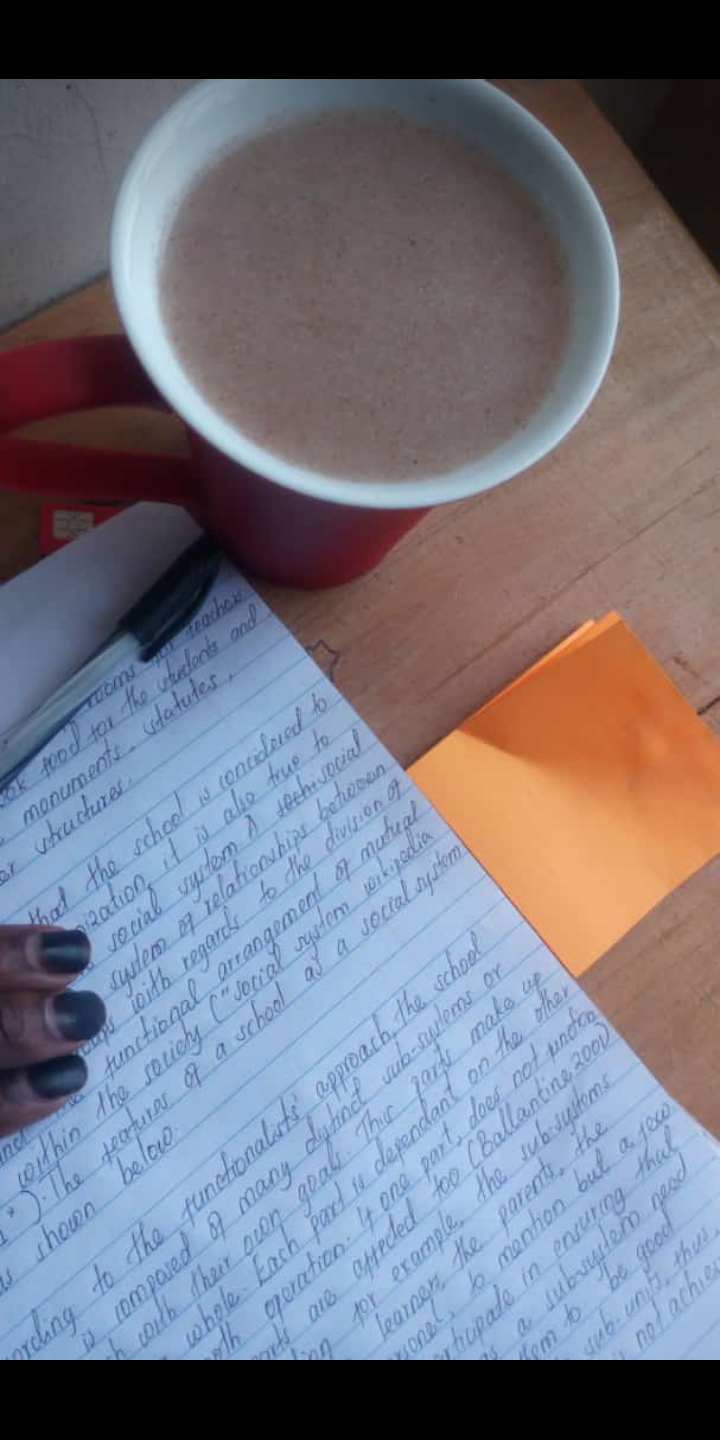 rooms for teachers
food for the students and
monuments, statutes,
structures.
that the school is considered to
it is also true to
social system. A social
system of relationships between
with regards to the division of
functional arrangement of mutual
within the society ("social system wikipedia
). The features of a school as a social system
shown below.
to the functionalists' approach, the school
is composed of many distinct sub-systems or
with their own goals. This parts make up
whole. Each part is dependant on the other
operation. If one part, does not function
are affected too (Ballantine 2001)
for example, the sub-systems
learners, the parents, the
to mention but a few
participate in ensuring that
as a sub-system need
them to be good
sub-unit, thus,
not achieve